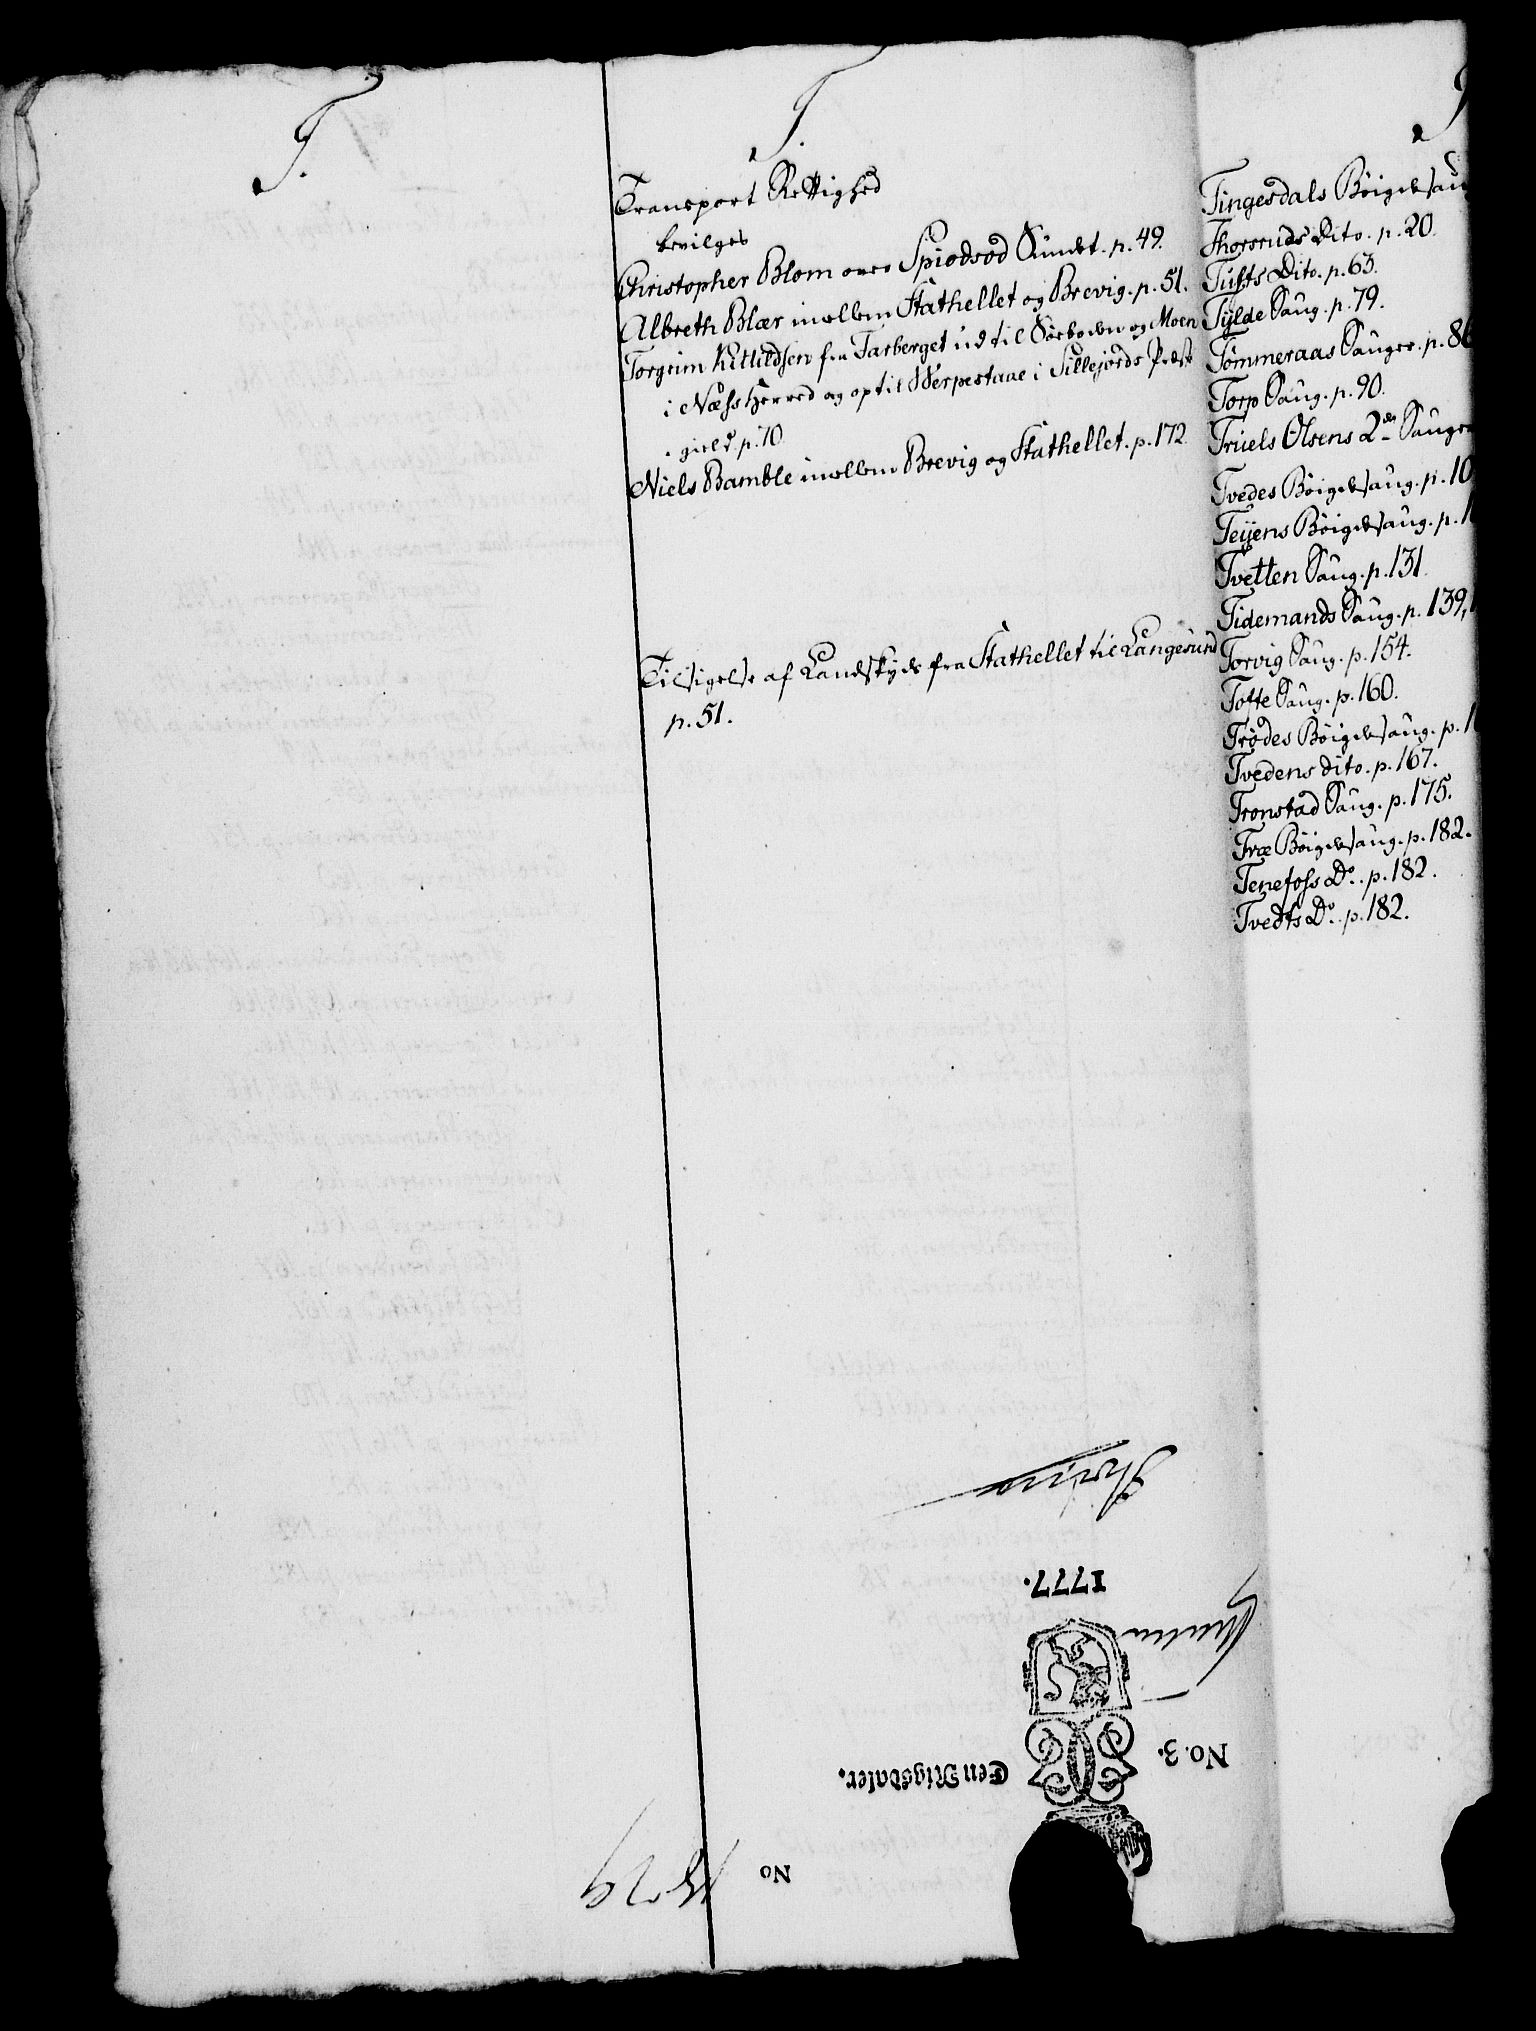 T.
T.
Transport Rettighed
bevilges
Christopher Blom over Spiodsod Sundt. p. 49.
Albreth Blær imellem Stathellet og Brevig. p. 51.
Torgrim Kittildsen fra Farberget ud til Sæeboden og Moen
i Næss Herred og op til Werpestaae i Sillejords Præst
gield p. 70.
Niels Bamble imellem Brevig og Stathellet. p. 172
Tilsigelse af Landskyds fra Stathellet til Langesund
p. 51.
T
Tingesdals Böigdesaug
Thorsruds Dito. p. 20.
Tufts Dito. p. 63.
Tylde Saug. p. 79.
Tommeraas Sauger. p. 86
Torp Saug. p. 90.
Truels Olsens 2de Sauger
Tvedes Böigdesaug. p. 10
Teÿens Böigdesaug. p. 1
Tvetten Saug. p. 131.
Tidemands Saug. p. 139, 1
Torvig Saug. p. 154.
Tofte Saug. p. 160.
Trödes Böigdesaug. p. 1
Tvedens dito. p. 167.
Tronstad Saug. p. 175.
Træ Böigdesaug. p. 182.
Tenefoss Do. p. 182.
Tvedts Do. p. 182.
1777.
No. 3.
Een Rigsdaler.
No